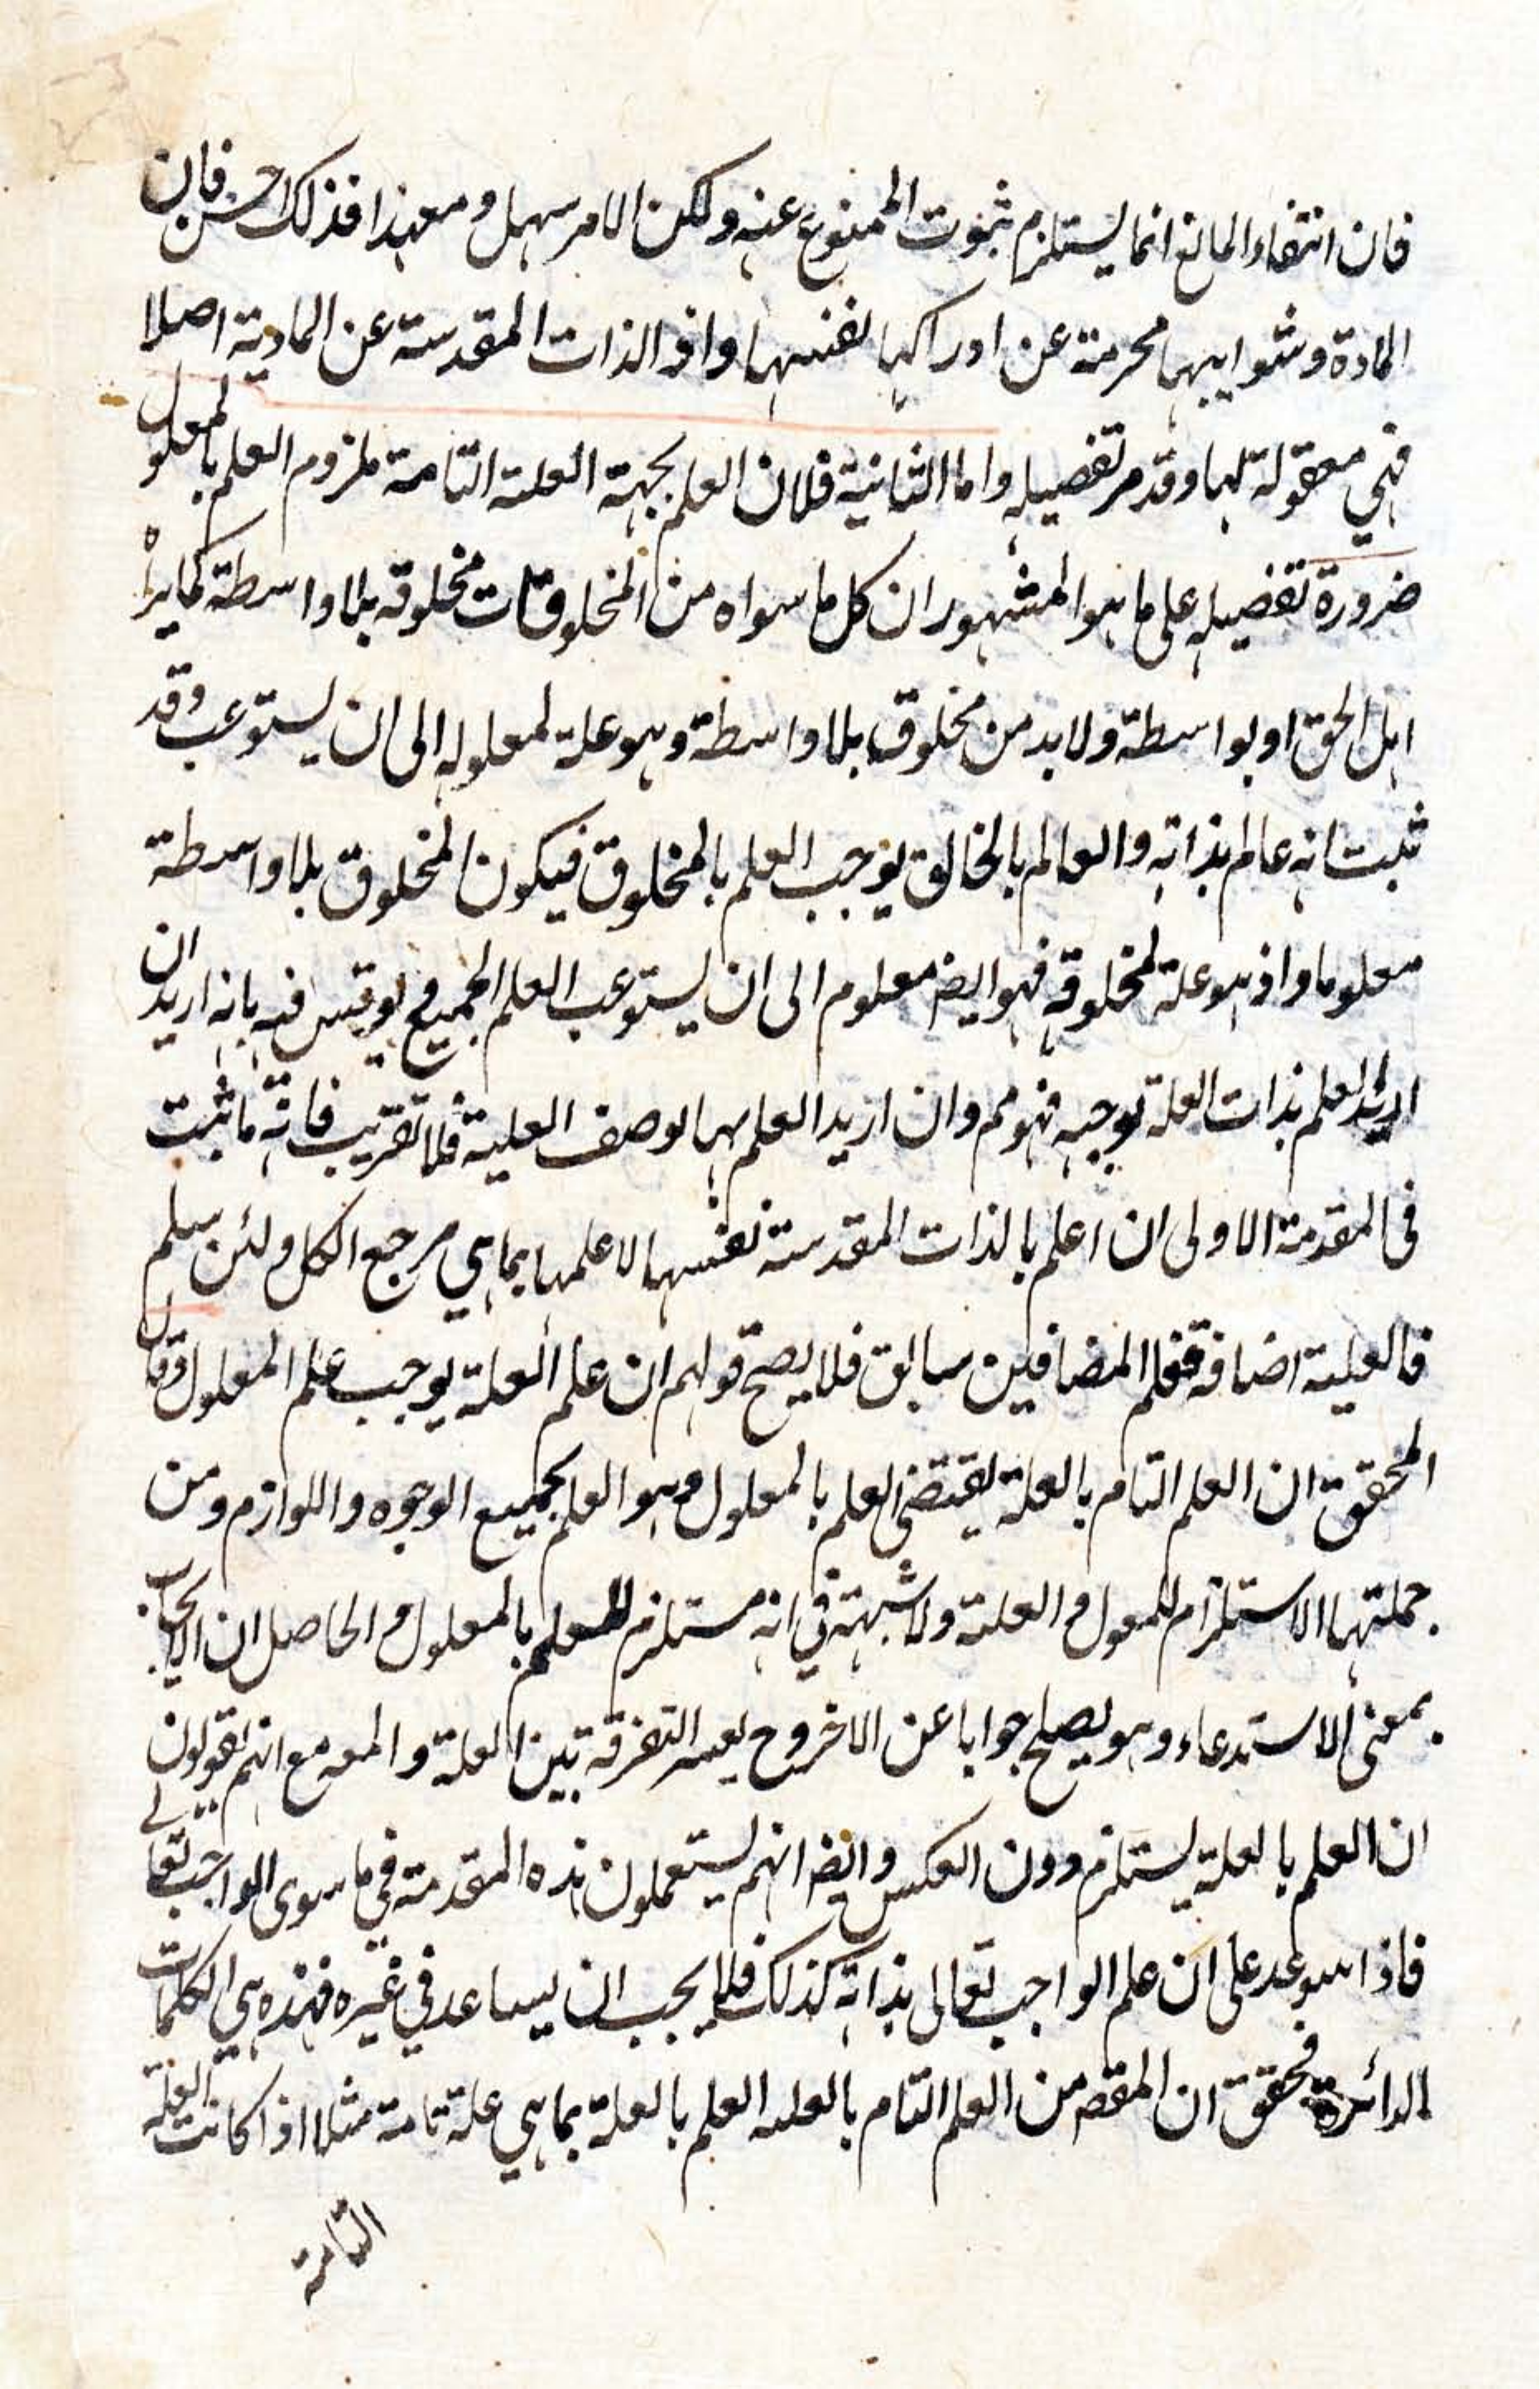 فان انتفاء المانع انما يستلزم ثبوت الممنوع عنه ولكن الامر سهل ومعهذا فذلك احسن فان
المادة وشوايبها محرمة عن ادراكها لنفسها واذ الذات المقدسة عن المادية اصلا
فهي معقولة لها وقد مر تفصيله واما الثانية فلان العلم بجهة العلة التامة ملزوم العلم بالمعلول
ضرورة تفصيله على ما هو المشهور ان كل ما سواه من المخلوقات مخلوقه بلا واسطة كما يراه
اهل الحق او بواسطة ولا بد من مخلوق بلا واسطة وهو علة لمعلوله الى ان يستوعب وقد
ثبت انه عالم بذاته والعالم بالخالق يوجب العلم بالمخلوق فيكون المخلوق بلا واسطة
معلوما واذ هو علة لمخلوقه فهو ايضا معلوم الى ان يستوعب العلم الجميع نوقش فيه بانه اريد ان
اريد العلم بذات العلة توجبه فهو مم وان اريد العلم بها بوصف العلية فلا تقريب فانه ما ثبت
فى المقدمة الاولى ان اعلم بالذات المقدسة نفسها لا علمها بما هي مرجع الكل ولئن سلم
فالعلية اضافة فعلم المضافين سابق فلا يصح قولهم ان علم العلة يوجب علم المعلول وقال
المحقق ان العلم التام بالعلة يقتضى العلم بالمعلول وهو العلم بجميع الوجوه واللوازم ومن
جملتها الاستلزام للمعول والعلة ولا شبهة في انه مستلزم للعلم بالمعلول والحاصل ان الايجاب
بمعنى الاستدعاء وهو يصلح جوابا عن الاخر وح يعسر التفرقة بين العلة والمعه مع انهم يقولون
ان العلم بالعلة يستلزم دون العكس وايضا انهم يستعملون هذه المقدمة في ما سوى الواجب تعالى
فاذا سوعد على ان علم الواجب تعالى بذاته كذلك فلا يجب ان يساعد في غيره فهذه هي الكلمات
الدائرة فحقق ان المقصه من العلم التام بالعله العلم بالعلة بما هي علة تامة مثلا اذا كانت العلة
التامة